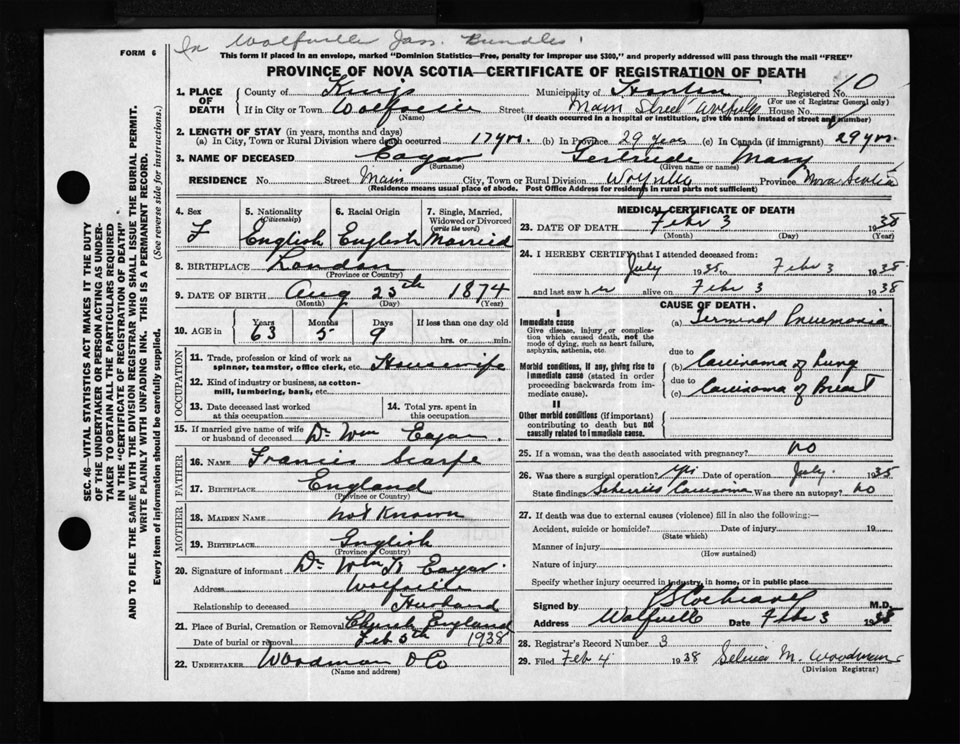 In Wolfville Jan. Bundles
FORM 6
This form if placed in an envelope, marked "Dominion Statistics—Free, penalty for improper use $300," and properly addressed will pass through the mail "FREE"
PROVINCE OF NOVA SCOTIA—CERTIFICATE OF REGISTRATION OF DEATH
1. PLACE OF DEATH County of Kings Municipality of Registered No. 10
(For use of Registrar General only)
If in City or Town Wolfville Street Main Street Wolfville House No.
(Name) (If death occurred in a hospital or institution, give the name instead of street and number)
2. LENGTH OF STAY (in years, months and days)
(a) In City, Town or Rural Division where death occurred 17 yrs. (b) In Province 29 years (c) In Canada (if immigrant) 29 yrs.
3. NAME OF DECEASED Eagar Gertrude Mary
(Surname) (Given name or names)
RESIDENCE No. Street Main City, Town or Rural Division Wolfville Province Nova Scotia
(Residence means usual place of abode. Post Office Address for residents in rural parts not sufficient)
4. Sex F
5. Nationality (Citizenship) English
6. Racial Origin English
7. Single, Married, Widowed or Divorced (write the word) Married
8. BIRTHPLACE London
(Province or Country)
9. DATE OF BIRTH Aug 25th 1874
(Month) (Day) (Year)
10. AGE in Years 63 Months 5 Days 9 If less than one day old hrs. or min.
OCCUPATION
11. Trade, profession or kind of work as spinner, teamster, office clerk, etc. Housewife
12. Kind of industry or business, as cotton-mill, lumbering, bank, etc.
13. Date deceased last worked at this occupation
14. Total yrs. spent in this occupation
15. If married give name of wife or husband of deceased Dr Wm Eagar.
FATHER
16. NAME Francis Scarfe
17. BIRTHPLACE England
(Province or Country)
MOTHER
18. MAIDEN NAME not Known
19. BIRTHPLACE English
(Province or Country)
20. Signature of informant Dr Wm H Eagar.
Address Wolfville
Relationship to deceased Husband
21. Place of Burial, Cremation or Removal Church England
Date of burial or removal Feb 5th 1938
22. UNDERTAKER Woodman & Co
(Name and address)
MEDICAL CERTIFICATE OF DEATH
23. DATE OF DEATH Febr 3 1938
(Month) (Day) (Year)
24. I HEREBY CERTIFY that I attended deceased from:
July 1935 to Febr 3 1938
and last saw her alive on Febr 3 1938
CAUSE OF DEATH
I
Immediate cause
Give disease, injury or complication which caused death, not the mode of dying, such as heart failure, asphyxia, asthenia, etc.
(a) Terminal Pneumonia
due to
Morbid conditions, if any, giving rise to immediate cause (stated in order proceeding backwards from immediate cause).
(b) Carcinoma of Lung
due to
(c) Carcinoma of Breast
II
Other morbid conditions (if important) contributing to death but not causally related to immediate cause.
25. If a woman, was the death associated with pregnancy? no
26. Was there a surgical operation? yes Date of operation July. 1935
State findings Carcinoma Was there an autopsy? no
27. If death was due to external causes (violence) fill in also the following:—
Accident, suicide or homicide? Date of injury 19
(State which)
Manner of injury
(How sustained)
Nature of injury
Specify whether injury occurred in industry, in home, or in public place
Signed by Cochrane M.D.
Address Wolfville Date Febr 3 1938
28. Registrar's Record Number 3
29. Filed Feb 4 1938 M. Woodman
(Division Registrar)
SEC. 46—VITAL STATISTICS ACT MAKES IT THE DUTY
OF THE UNDERTAKER OR PERSON ACTING AS UNDER-
TAKER TO OBTAIN ALL THE PARTICULARS REQUIRED
IN THE "CERTIFICATE OF REGISTRATION OF DEATH"
AND TO FILE THE SAME WITH THE DIVISION REGISTRAR WHO SHALL ISSUE THE BURIAL PERMIT.
WRITE PLAINLY WITH UNFADING INK. THIS IS A PERMANENT RECORD.
Every item of information should be carefully supplied. (See reverse side for instructions.)